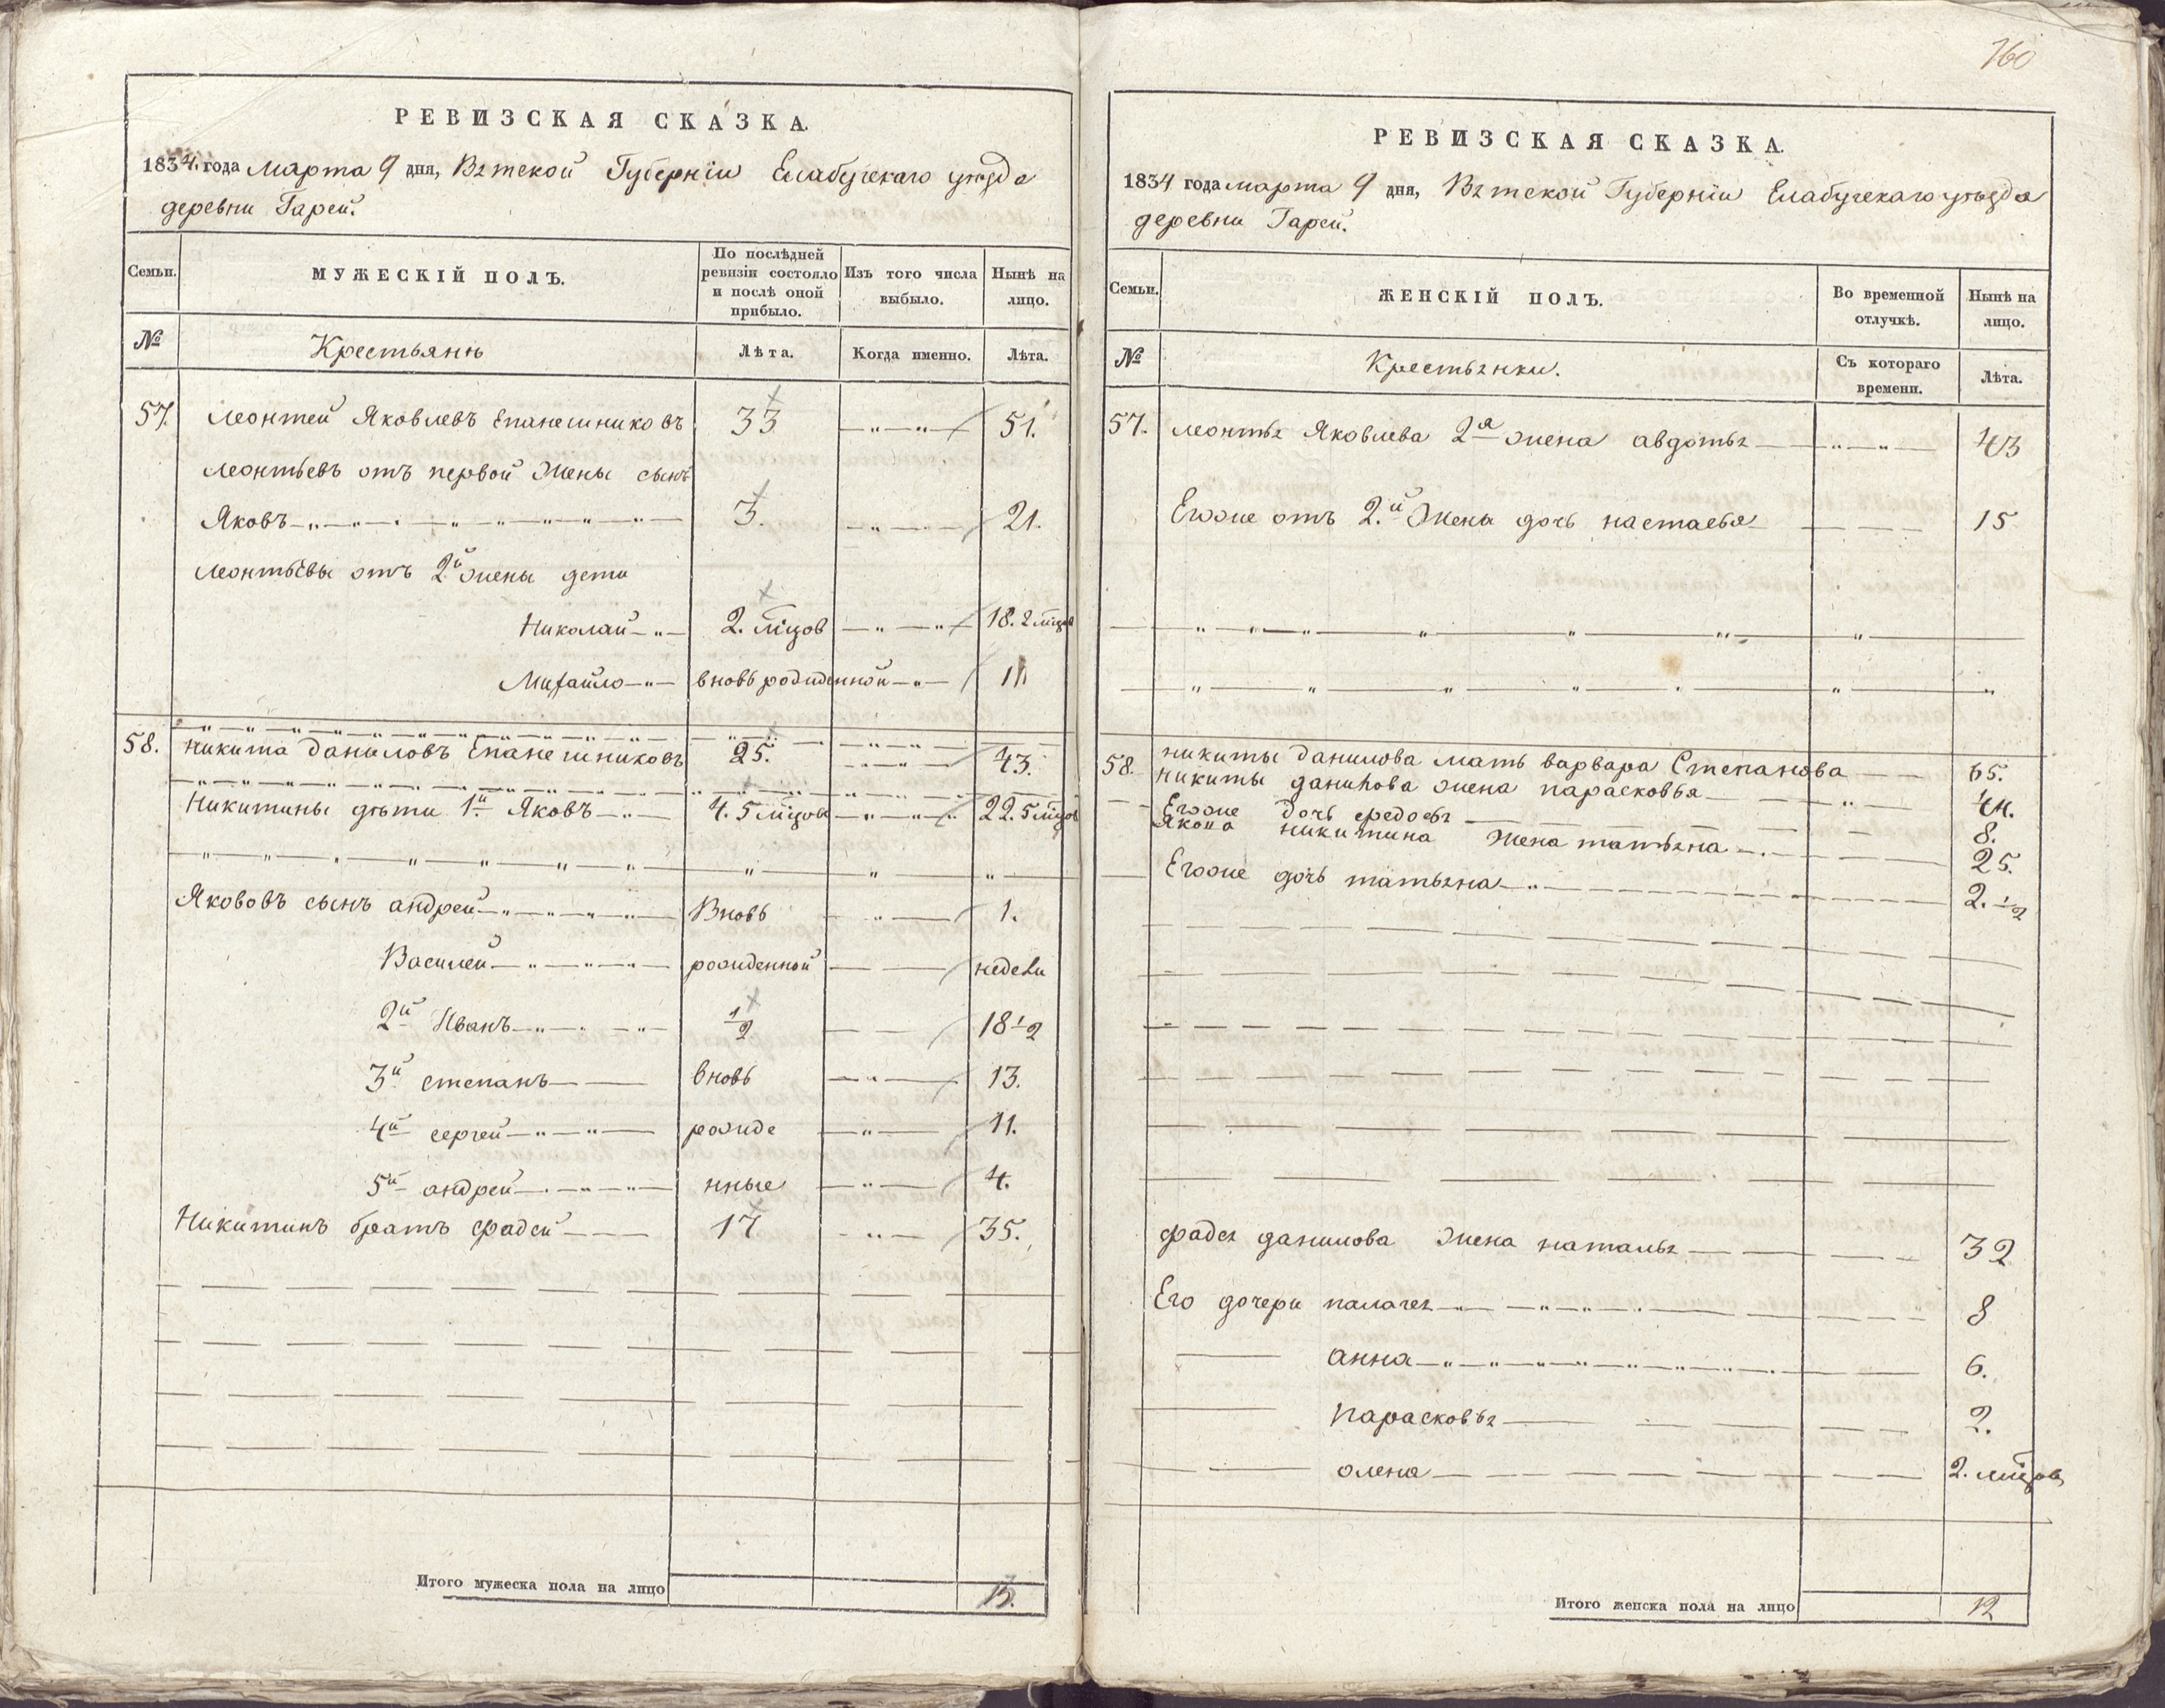 РЕВИЗСКАЯ СКАЗКА.
1834. года Марта 9 дня, Вятской Губерніи Елабугскаго уѣзда
деревни Гарей.
Семьи. МУЖЕСКІЙ ПОЛЪ. По послѣдней ревизіи состояло и послѣ оной прибыло. Изъ того числа выбыло. Нынѣ на лицо.
№ Крестьянѣ Лѣта. Когда именно. Лѣта.
57. Леонтей Яковлевъ Епанешниковъ 33 51.
Леонтьевъ отъ первой Жены сынъ
Яковъ 3. 21.
Леонтьевы отъ 2й жены дети
Николай 2. мцов 18. 2 мцов
Михайло вновь рожденной 11
58. Никита даниловъ Епанешниковъ 25. 43.
Никитины дѣти 1й Яковъ 4. 5 мцовъ 22. 5 мцов
Яововъ сынъ андрей Вновь 1.
Василей рожденной недели
2й Иванъ 1/2 18 1/2
3й степанъ вновь 13.
4й сергей рожде 11.
5й андрей нные 4.
Никитинъ братъ фадей 17 35.
Итого мужеска пола на лицо 13.
160
РЕВИЗСКАЯ СКАЗКА.
1834 года марта 9 дня, Вятской Губерніи Елабугскаго уѣзда
деревни Гарей.
Семьи. ЖЕНСКІЙ ПОЛЪ. Во временной отлучкѣ. Нынѣ на лицо.
№ Крестьянки. Съ котораго времени. Лѣта.
57. леонтья Яковлева 2я жена авдотья 43
Егоже отъ 2.й Жены дочь настасья 15
58. никиты данилова мать варвара Степанова 65.
никиты данилова жена парасковья 44.
Егоже дочь федосья 8.
Якова никитина Жена татьяна 25.
Егоже дочь татьяна 2. 1/2
фадея данилова Жена наталья 32
Его дочери палагея 8
анна 6.
парасковья 2.
олена 2. мцов
Итого женска пола на лицо 12